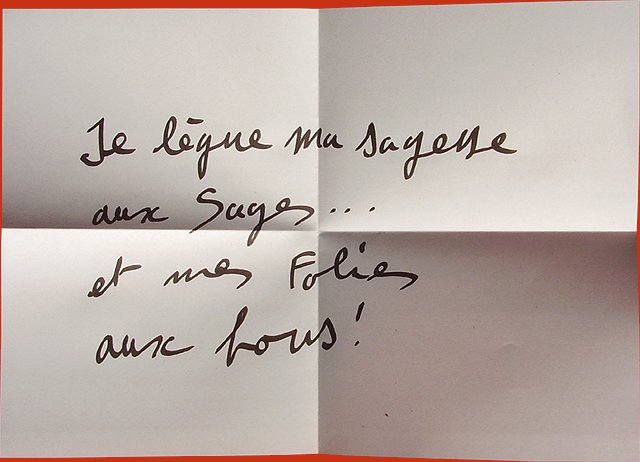 Je lègue ma sagesse
aux Sages...
et mes Folies
aux fous!